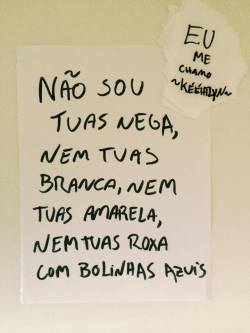 NÃO SOU
TUAS NEGA,
NEM TUAS
BRANCA, NEM
TUAS AMARELA,
NEM TUAS ROXA
COM BOLINHAS AZUIS
EU
ME
CHAMO